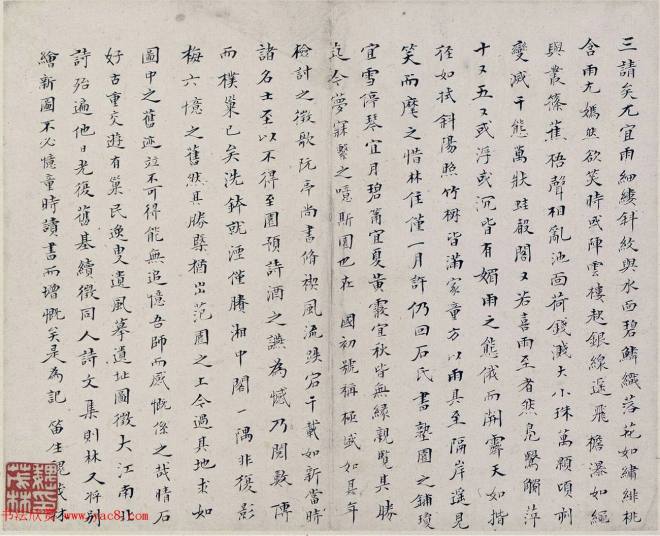 三請矣尤宜雨細縷斜紋與水面碧鱗織落花如繡緋桃
含雨尤嫣然欲笑時或陣雲樓起銀線遥飛檐瀑如繩
與叢篠蕉梧聲相亂池面荷錢濺大小珠萬顆頃刻
變滅千態萬狀蛙報閣又若喜雨至者然鳧鷖觸萍
十又五又或浮或沉皆有媚雨之態俄而開霽天如揩
徑如拭斜陽照竹樹皆滿家童方以雨具至隔岸遥見
笑而麾之惜林住僅一月許仍回石氏書塾園之鋪瓊
宜雪停琴宜月碧簫宜夏黄霞宜秋皆無緣親覽其勝
迄今夢寐繫之噫斯園也在 國初號稱極盛如其年
檢討之徵歌阮亭尚書脩禊風流跌宕千載如新當時
諸名士至以不得至園預詩酒之讌為憾乃閲數傳
而樸巢已矣洗鉢就湮僅賸湘中閣一隅非復影
梅六憶之舊然其勝槩猶出范園之上今過其地求如
圖中之舊迹並不可得能無追憶吾師而感慨係之哉情石
好古重交遊有巢民逸叟遺風摹遺址圖徵大江南北
詩殆遍他日光復舊基續徵同人詩文集則林又將别
繪新圖不必憶童時讀書而增慨矣是為記 笛生魏茂林
魏氏
茂林
书法欣赏 www.yac8.com